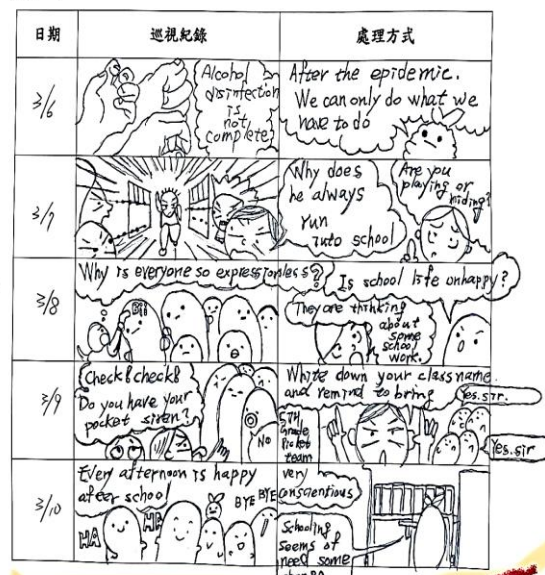 日期
巡視紀錄
處理方式
3/6
Alcohol
disinfection
is
not
complete
After the epidemic.
We can only do what we
have to do
3/7
Why does
he always
run
into school
Are you
playing or
hiding?
3/8
Why is everyone so expressionless?
Is school life unhappy?
They are thinking
about
some
school
work.
3/9
Check! check!
Do you have your
pocket siren?
NO
White down your class name.
and remind to bring
Yes.sir.
5TH
Grade
Picket
team
Yes.sir
3/10
Ever afternoon is happy
afeer school
HA
HA
BYE BYE
very
conscientious
Schooling
seems of
need some